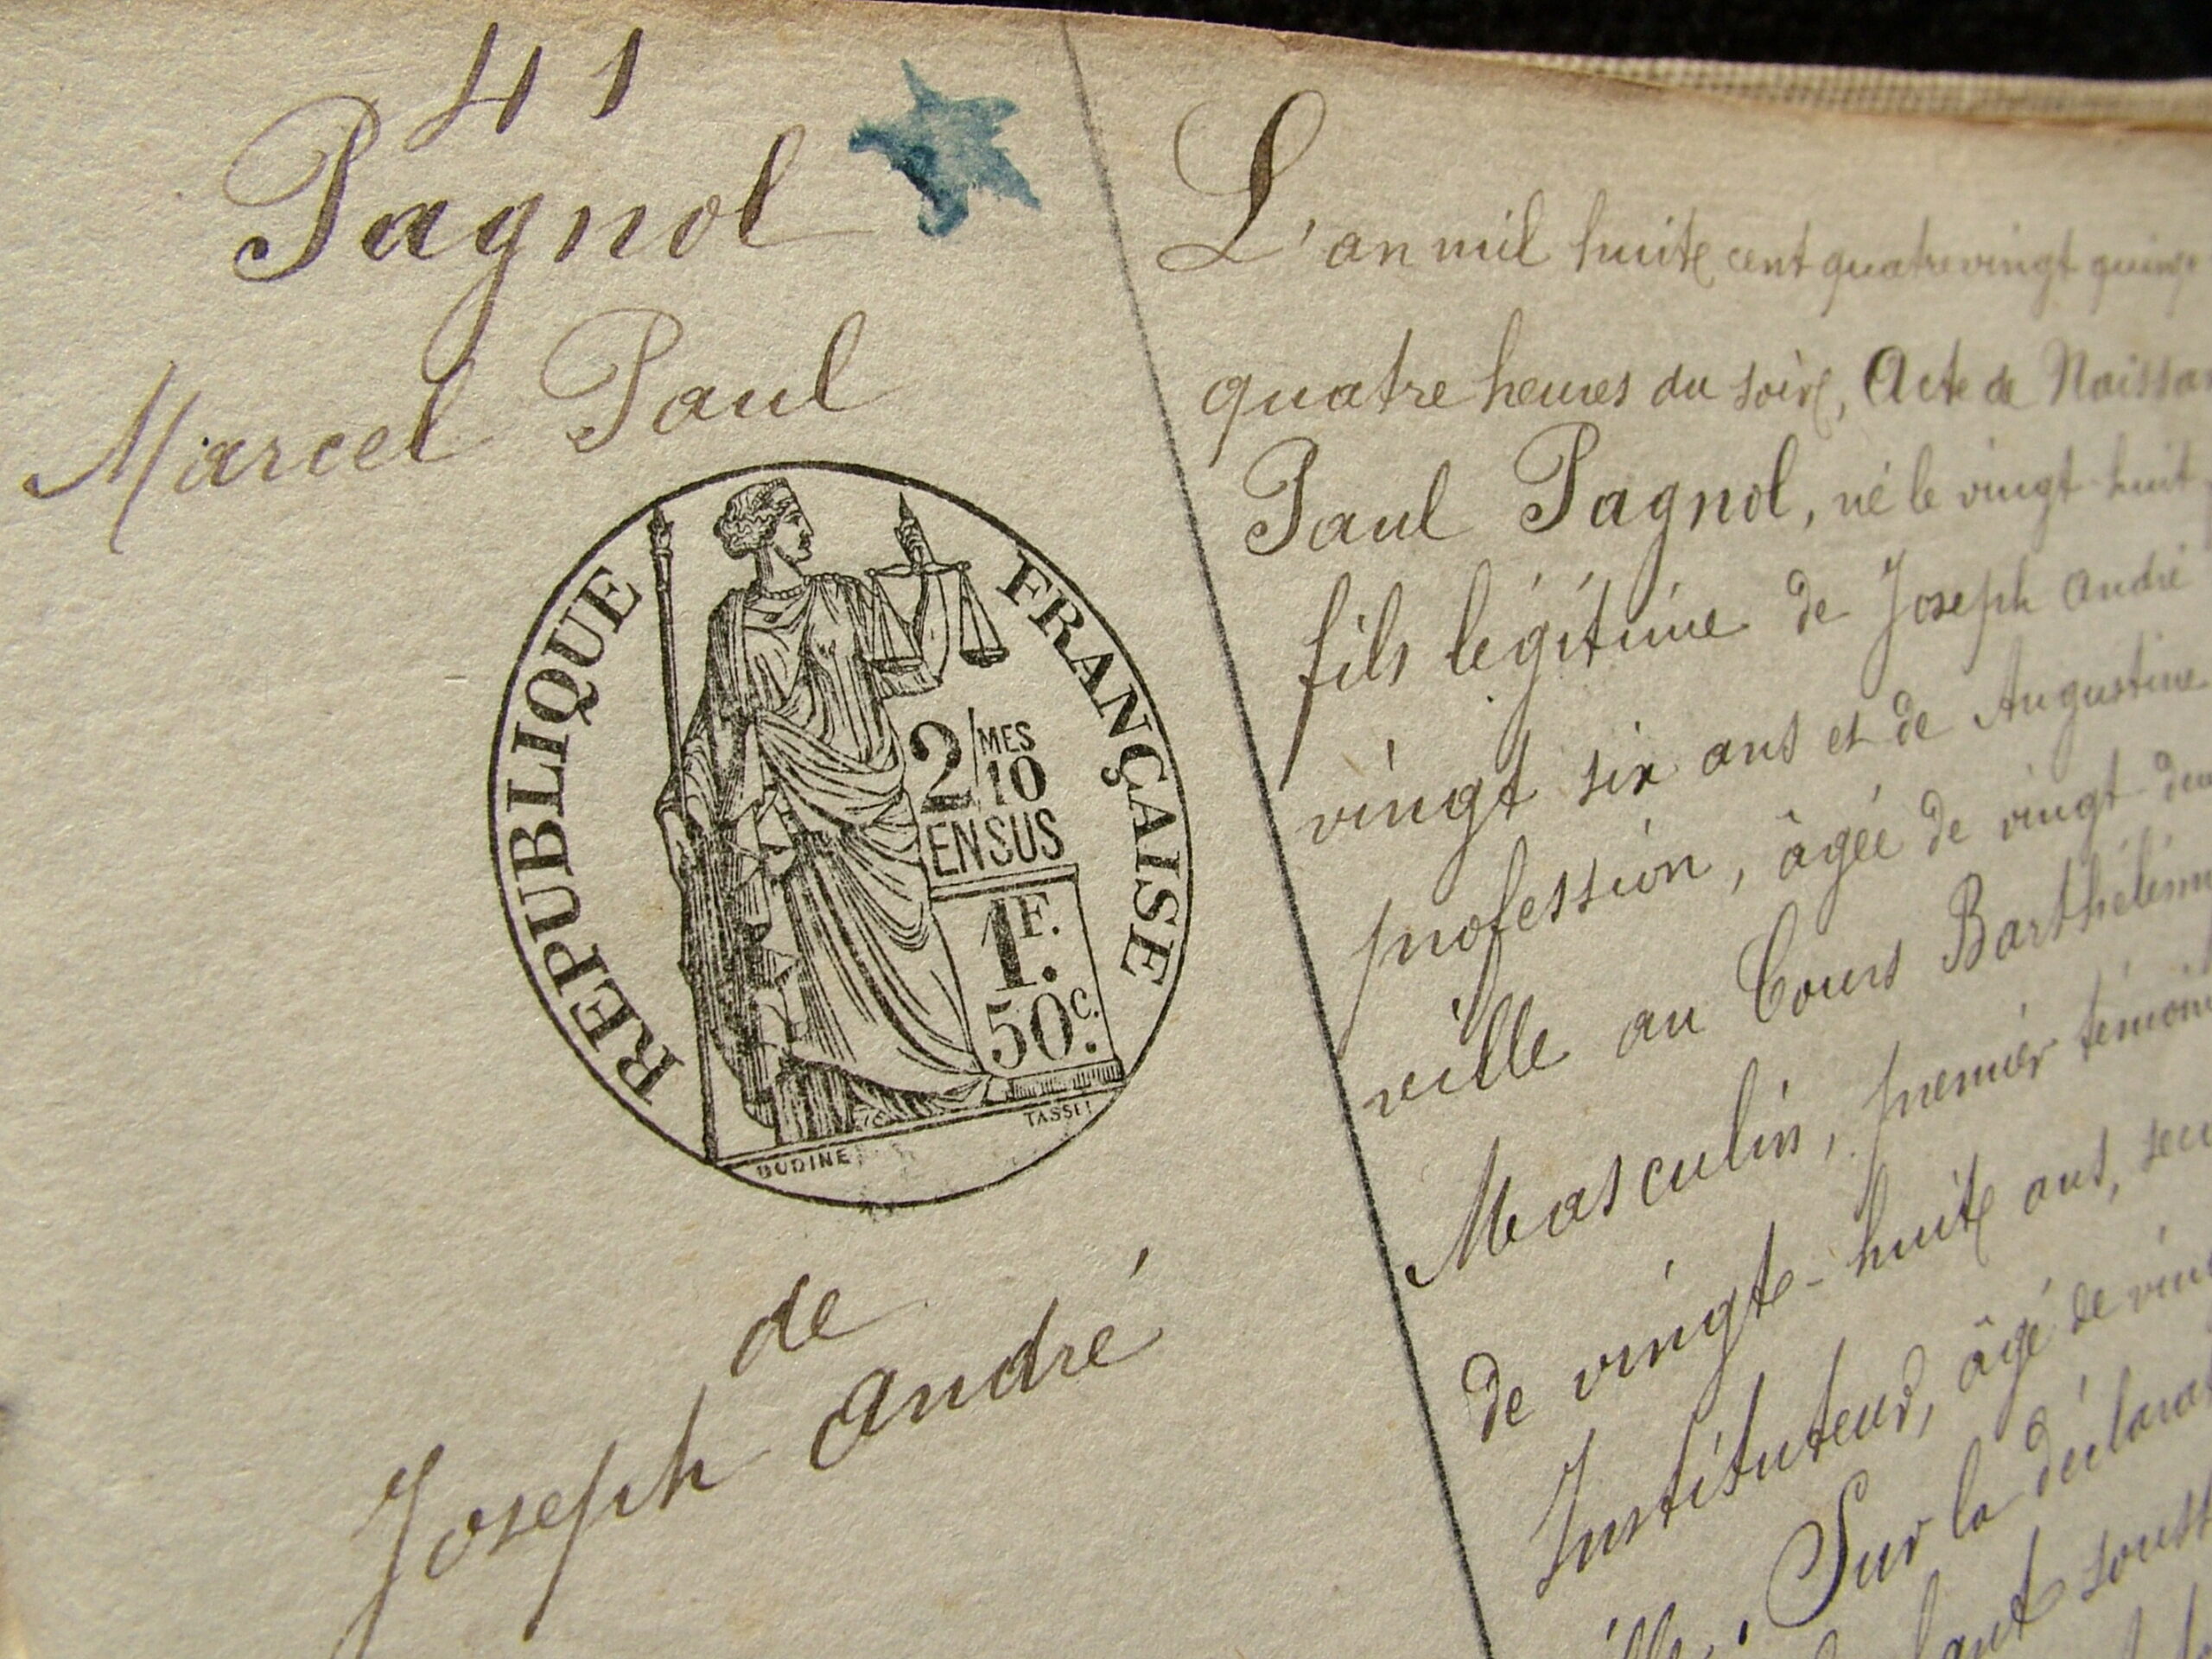 41
Pagnol
Marcel Paul
REPUBLIQUE FRANÇAISE
2/MES
10
EN SUS
1F.
50c.
OUDINE
TASSET
de
Joseph André
L'an mil huit cent quatre vingt quinze
quatre heures du soir, Acte de
Paul Pagnol, né le vingt huit
fils légitime de Joseph André
vingt six ans et de Augustine
profession, âgée de vingt
ville au Cours
Masculin, premier
de vingt-huit ans,
Instituteur, âgé de
Sur la